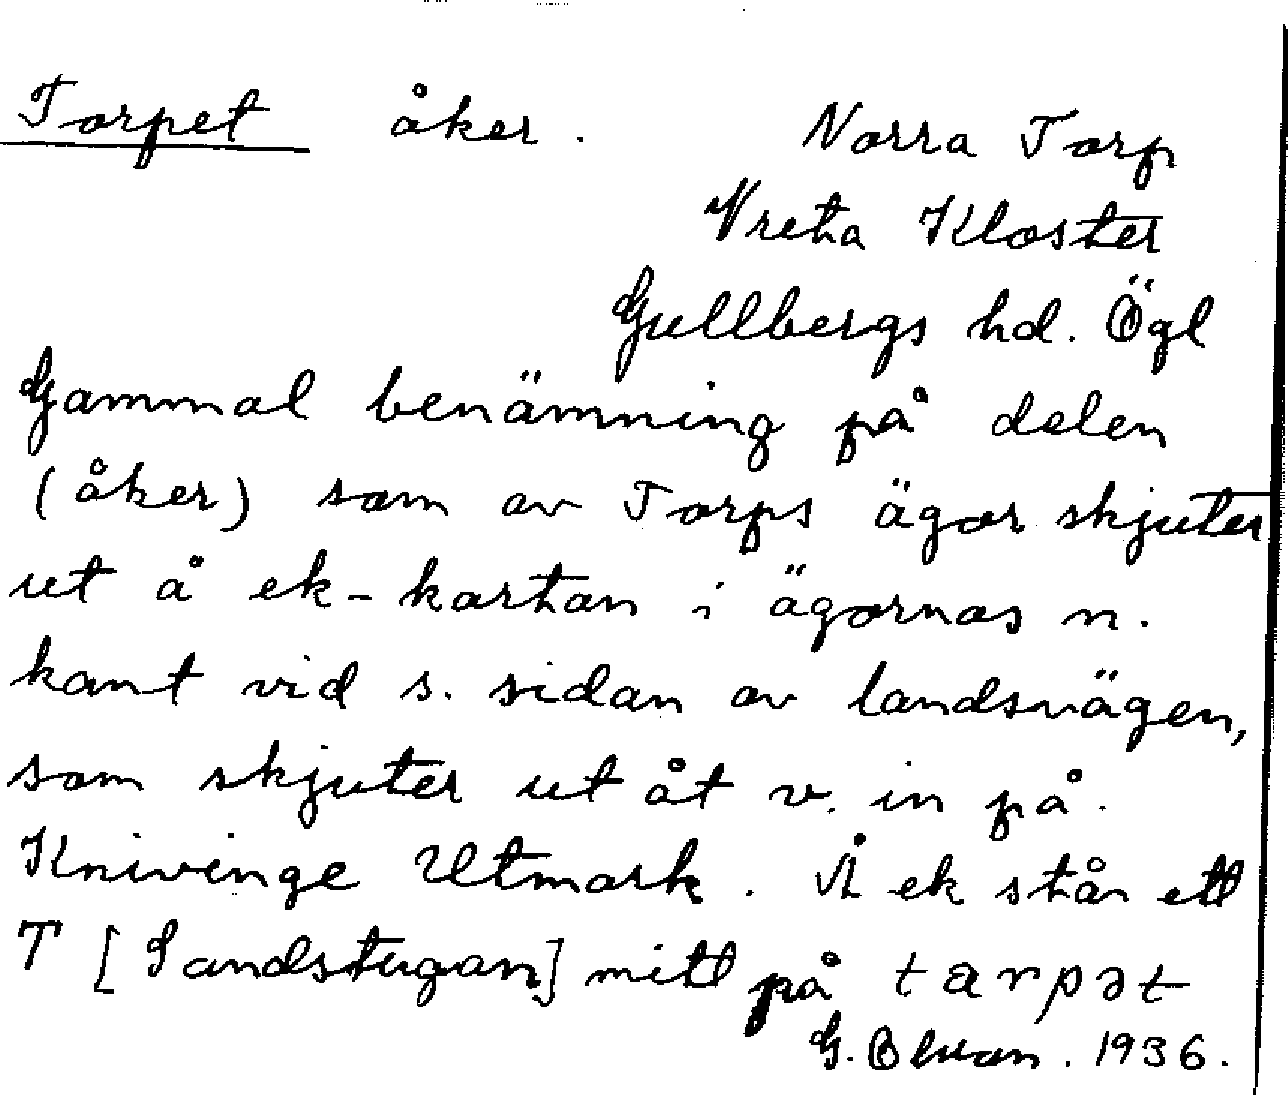 Torpet åker. Norra Torp
Vreta Kloster
Gullbergs hd. Ögl
Gammal benämning på delen
(åker) som av Torps ägor skjuter
ut å ek-kartan i ägornas n.
kant vid s. sidan av landsvägen,
som skjuter ut åt v. in på
Knivinge Utmark. Å ek står ett
T [Sandstugan] mitt på tarpət
G. 1936.